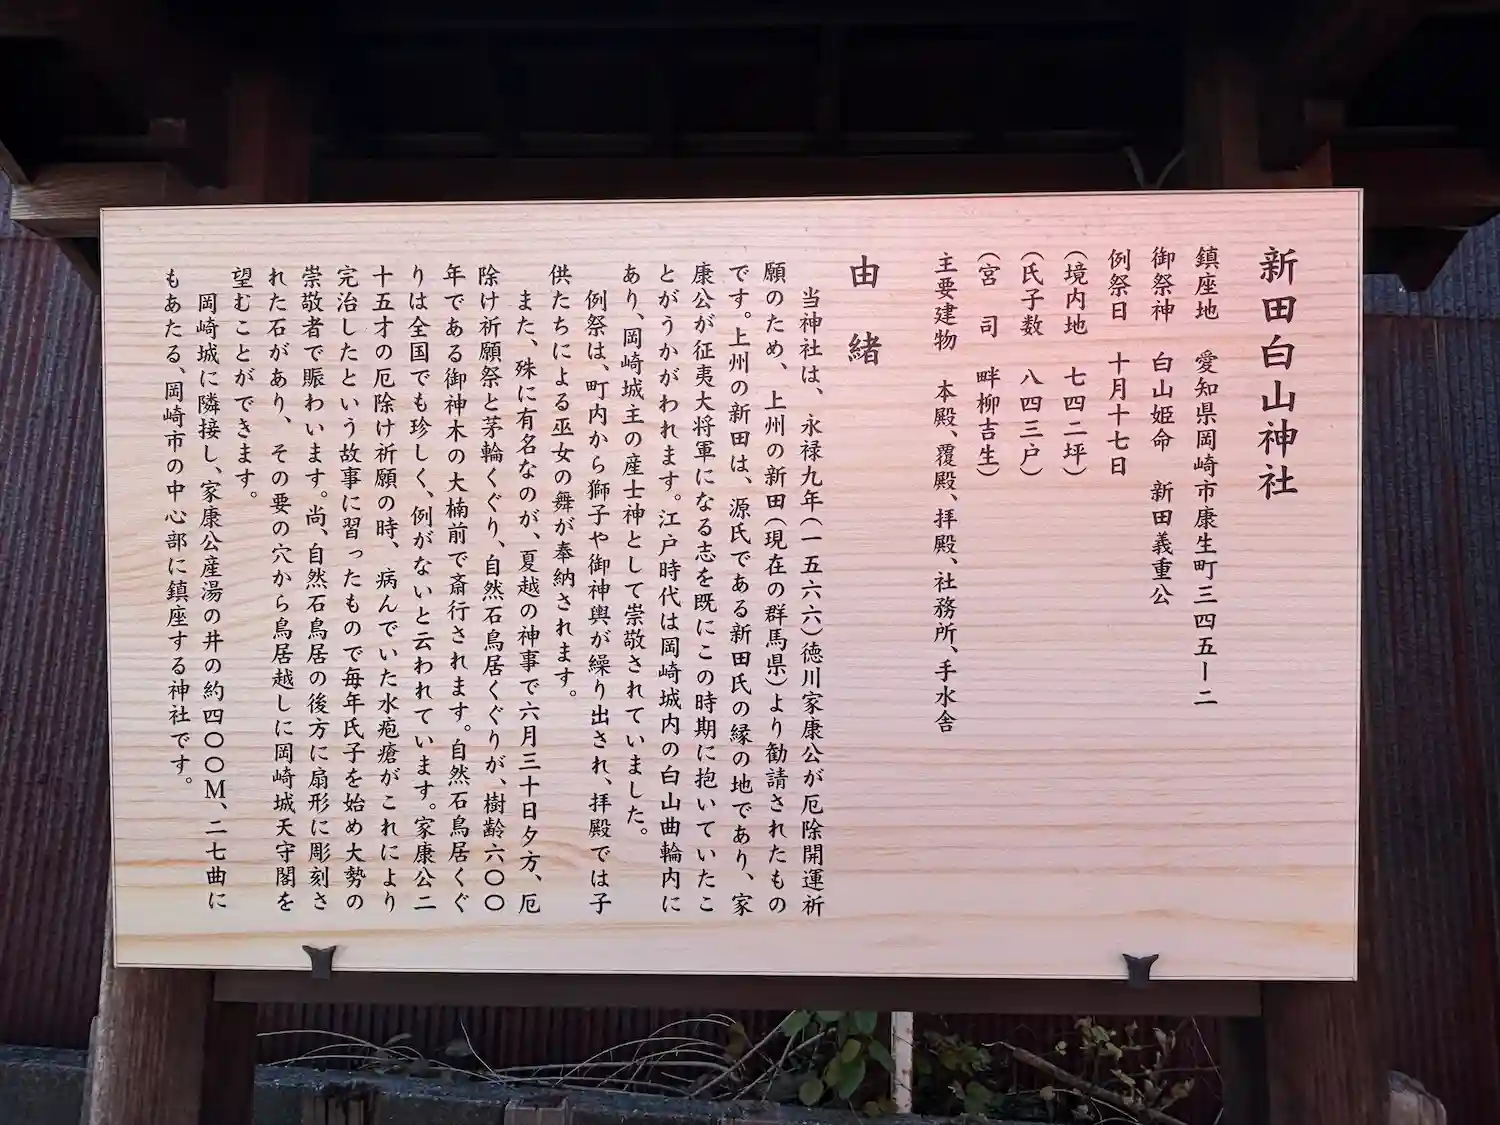 新田白山神社
鎮座地　愛知県岡崎市康生町三四五ー二
御祭神　白山姫命　新田義重公
例祭日　十月十七日
(境内地　七四二坪)
(氏子数　八四三戸)
(宮　司　畔柳吉生)
主要建物　本殿、覆殿、拝殿、社務所、手水舎
由　緒
当神社は、永禄九年(一五六六)徳川家康公が厄除開運祈
願のため、上州の新田(現在の群馬県)より勧請されたもの
です。上州の新田は、源氏である新田氏の縁の地であり、家
康公が征夷大将軍になる志を既にこの時期に抱いていたこ
とがうかがわれます。江戸時代は岡崎城内の白山曲輪内に
あり、岡崎城主の産土神として崇敬されていました。
例祭は、町内から獅子や御神輿が繰り出され、拝殿では子
供たちによる巫女の舞が奉納されます。
また、殊に有名なのが、夏越の神事で六月三十日夕方、厄
除け祈願祭と茅輪くぐり、自然石鳥居くぐりが、樹齢六〇〇
年である御神木の大楠前で斎行されます。自然石鳥居くぐ
りは全国でも珍しく、例がないと云われています。家康公二
十五才の厄除け祈願の時、病んでいた水疱瘡がこれにより
完治したという故事に習ったもので毎年氏子を始め大勢の
崇敬者で賑わいます。尚、自然石鳥居の後方に扇形に彫刻さ
れた石があり、その要の穴から鳥居越しに岡崎城天守閣を
望むことができます。
岡崎城に隣接し、家康公産湯の井の約四〇〇M、二七曲に
もあたる、岡崎市の中心部に鎮座する神社です。